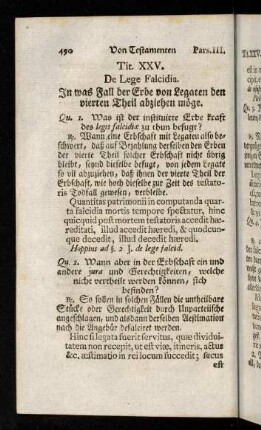 490 Von Testamenten Pars. III.
Tit. XXV.
De Lege Falcidia.
In was Fall der Erbe von Legaten den
vierten Theil abziehen möge.
Qu. 1. Was ist der instituirte Erbe kraft
des legis falcidiæ zu thun befugt?
℞. Wann eine Erbschaft mit Legaten also be-
schwert, daß auf Bezahlung derselben den Erben
der vierte Theil solcher Erbschaft nicht übrig
bleibt, seynd dieselbe befugt, von jedem Legate
so vil abzuziehen, daß ihnen der vierte Theil der
Erbschaft, wie hoch dieselbe zur Zeit des testato-
ris Todfall gewesen, verbleibe.
Quantitas patrimonii in computanda quar-
ta falcidia mortis tempore spectatur, hinc
quicquid post mortem testatoris accedit hæ-
reditati, illud accedit hæredi, & quodcun-
que decedit, illud decedit hæredi.
Hoppius ad §. 2 J. de lege falcid.
Qu. 2. Wann aber in der Erbschaft ein und
andere jura und Gerechtigkeiten, welche
nicht vertheilt werden können, sich
befinden?
℞. So sollen in solchen Fällen die untheilbare
Stücke oder Gerechtigkeit durch Unparteiische
angeschlagen, und alsdann derselben Aestimation
nach die Angebür defalciret werden.
Hinc si legata fuerit servitus, quæ dividui-
tatem non recepit, ut est viæ, itineris, actus
&c. æstimatio in rei locum succedit; secus
est